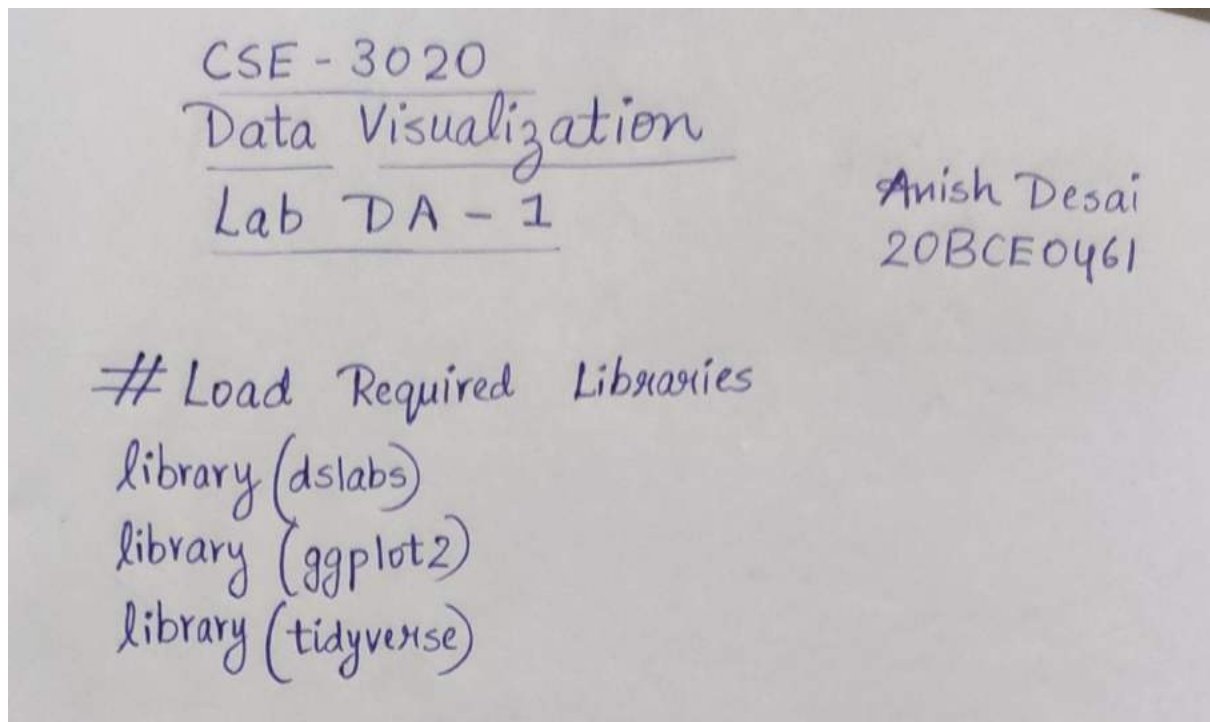 CSE - 3020
Data Visualization
Lab DA - 1
Anish Desai
20BCE0461
# Load Required Libraries
library (dslabs)
library (ggplot2)
library (tidyverse)